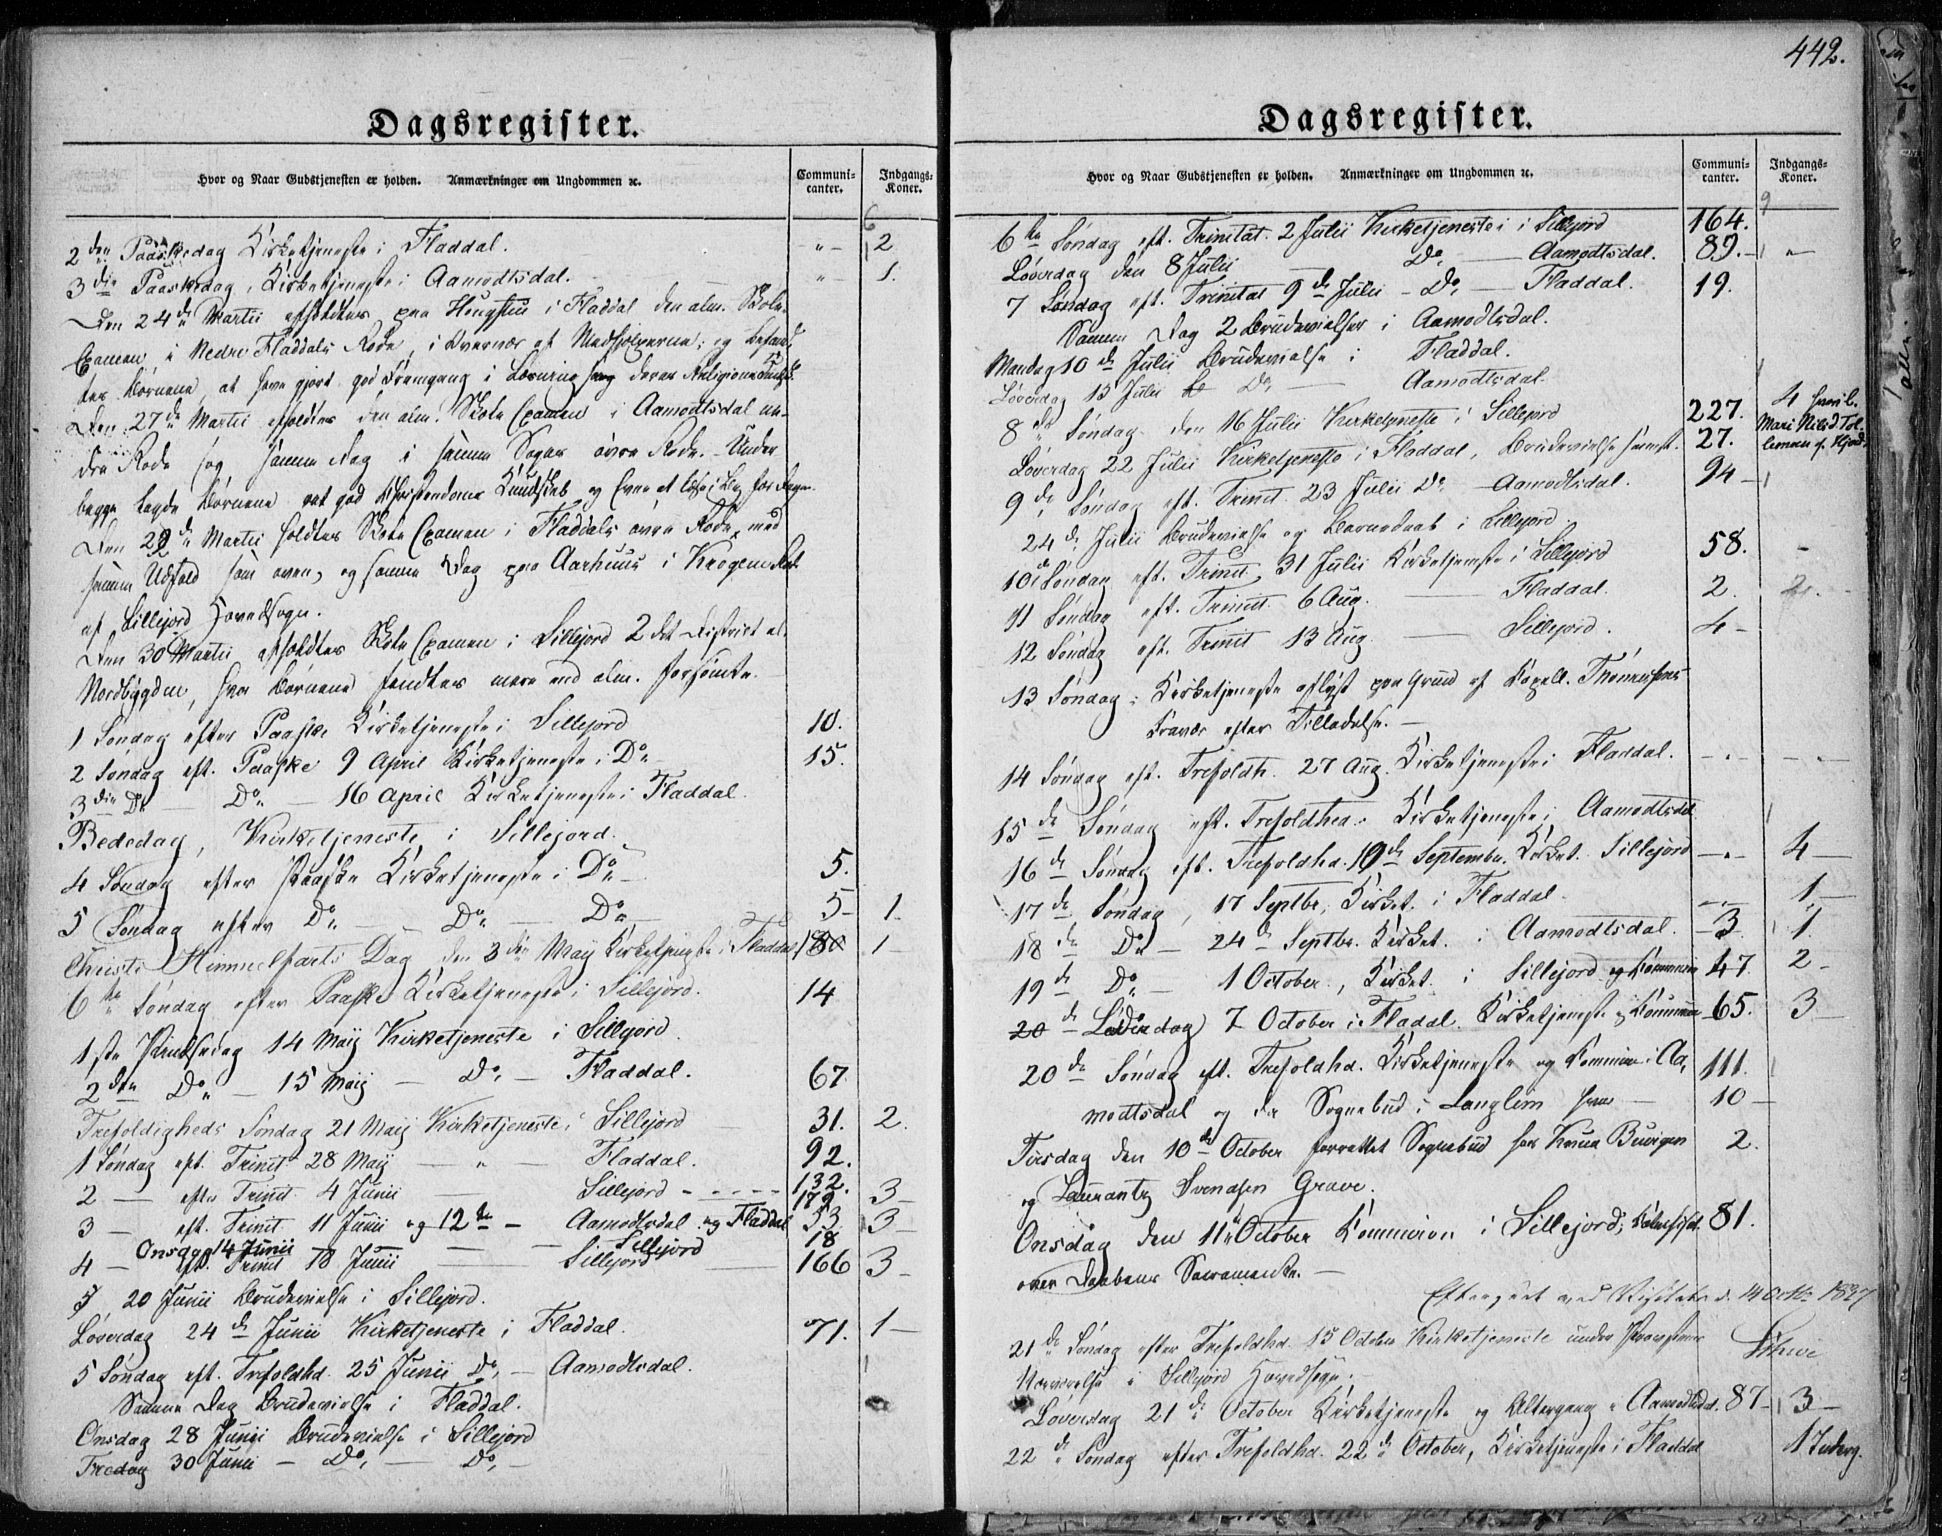 Dagsregister.
Hvor og Naar Gudstjenesten er holden. Anmærkninger om Ungdommen ꝛc.
Communicanter.
Indgangs-Koner.
6
2den Paaskedag Kirketjeneste i Fladdal. „ - 2.
3die Paaskedag, Kirketjeneste i Aamodtsdal. „ 1.
Den 24de Martii afholdtes paa i Fladdal den alm. Skole-
Examen i Nedre Fladdals Rode, i Overvær af Medhjelperne; og befand-
tes Børnene at have gjort god Fremgang i deres Religionskundsk.
Den 27de Martii afholdtes den alm. Skole Examen i Aamodtsdal ne-
dre Rode og samme Dag i samme Sogns øvre Rode. - Under
begge lagde Børnene god Christendoms Kundskab og Evne at læse i Bog for Dagen.
Den 28de Martii holdtes Skole Examen i Fladdals øvre Rode, med
samme Udfald som oven, og samme Dag paa Aarhuus i
af Sillejord Hovedsogn.
Den 30 Martii afholdtes Skole Examen i Sillejord 2det District al.
Nordbygden, hvor Børnene fandtes mere end alm. forsömte.
1 Søndag efter Paaske Kirketjeneste i Sillejord 10.
2 Søndag eft. Paaske 9 April Kirketjeneste i Do 15.
3die Do — Do — 16 April Kirketjeneste i Fladdal.
Bededag, Kirketjeneste i Sillejord.
4 Søndag efter Paaske Kirketjeneste i Do — 5.
5 Søndag efter Do — Do — Do 5- 1.
Christi Himmelfarts Dag den 3die Maij Kirketjeneste i Fladdal 180 1-
6te Søndag efter Paaske Kirketjeneste i Sillejord. 14
1ste Pindsedag 14 Maij Kirketjeneste i Sillejord.
2den Do — 15 Maij — Do, — Fladdal. 67
Trefoldigheds Søndag 21 Maij Kirketjeneste i Sillejord 31. 2.
1 Søndag eft. Trinit 28 Maij — „ — Fladdal. 92.
2 — efter Trinit. 4 Junii Sillejord - - - - - 132. 3-
179
3 — eft. Trinit 11 Junii og 12te — Aamodtsdal og Fladdal 53. 3-
Onsdag 14 Junii — Sillejord 18
4 — eft. Trinit 18 Junii — Sillejord 166 3-
20 Junii Brudevielse i Sillejord.
Løverdag 24de Junii Kirketjeneste i Fladdal. 71. 1-
5 Søndag eft. Trefoldhd. 25 Junii Do, — Aamodtsdal.
Samme Dag Brudevielse i Fladdal.
Onsdag 28 Junii Brudevielse i Sillejord
Fredag 30 Junii — Do, — Do, —
442.
Dagsregister.
Hvor og Naar Gudstjenesten er holden. Anmærkninger om Ungdommen ꝛc.
Communicanter.
Indgangs-Koner.
9
6te Søndag eft. Trinitat. 2 Julii Kirketjeneste i Sillejord 164.
Løverdag den 8 Julii Do, — Aamodtsdal. 89. - „
7 Søndag eft. Trinitat 9de Julii — Do, — Fladdal. 19.
Samme Dag 2 Brudevielser i Aamodtsdal.
Mandag 10de Julii Brudevielse i Fladdal.
Løverdag 15 Julii Do, — Aamodtsdal.
8de Søndag den 16 Julii Kirketjeneste i Sillejord 227. 4
Mari Nilsd. Tol-
Løverdag 22 Julii Kirketjeneste i Fladdal, Brudevielse samt. 27.
9de Søndag eft. Trinit. 23 Julii Do — Aamodtsdal. 94 —
24de Julii Brudevielse og Barnedaab i Sillejord.
10de Søndag eft. Trinit. 31 Julii Kirketjeneste i Sillejord 58. -
11 Søndag eft. Trinit 6 Aug. — Fladdal. 2. 2.
12 Søndag eft. Trinit 13 Aug. — Sillejord. 4-
13 Søndag: Kirketjeneste aflyst paa Grund af Capell. Thönnesens
Fravær efter Tilladelse. —
14 Søndag eft. Trefoldh. 27 Aug. Kirketjeneste i Fladdal. - „ - - „ -
15de Søndag eft. Trefoldhed. Kirketjeneste i Aamodtsdal
16de Søndag eft. Trefoldhd. 10de Septembr. Kirket. Sillejord - „ - 4 -
17de Søndag, 17 Septbr, Kirket. i Fladdal. - „ - 1. -
18de Do — 24de Septbr. Kirket. i Aamodtsdal. 3. 1.
19de Do — 1 October, Kirket. i Sillejord og Commun 47. 2-
20 de Løverdag 7 October i Fladal. Kirketjeneste og Commun 65. 3-
20de Søndag eft. Trefoldhd. Kirketjeneste og Commun i Aa- 111.
modtsdal og da Sognebud i Langlim — 10 -
Tirsdag den 10de October forrettet Sognebud hos Knut Buvigen 2.
og Laurantz Svendsen Grave.
Onsdag den 11te October Communion i Sillejord; 81.
over Daabens Sacramente. —
Eftergaaet ved Visitats d. 14 Octbr 1837
21de Søndag efter Trefoldhd. 15 October Kirketjeneste under Provstens
Nærværelse i Sillejord Hovedsogn.
Løverdag 21de October Kirketjeneste og Altergang i Aamodtsdal. 87- 3-
22de Søndag efter Trefoldhd. 22de October, Kirketjeneste i Fladdal 1